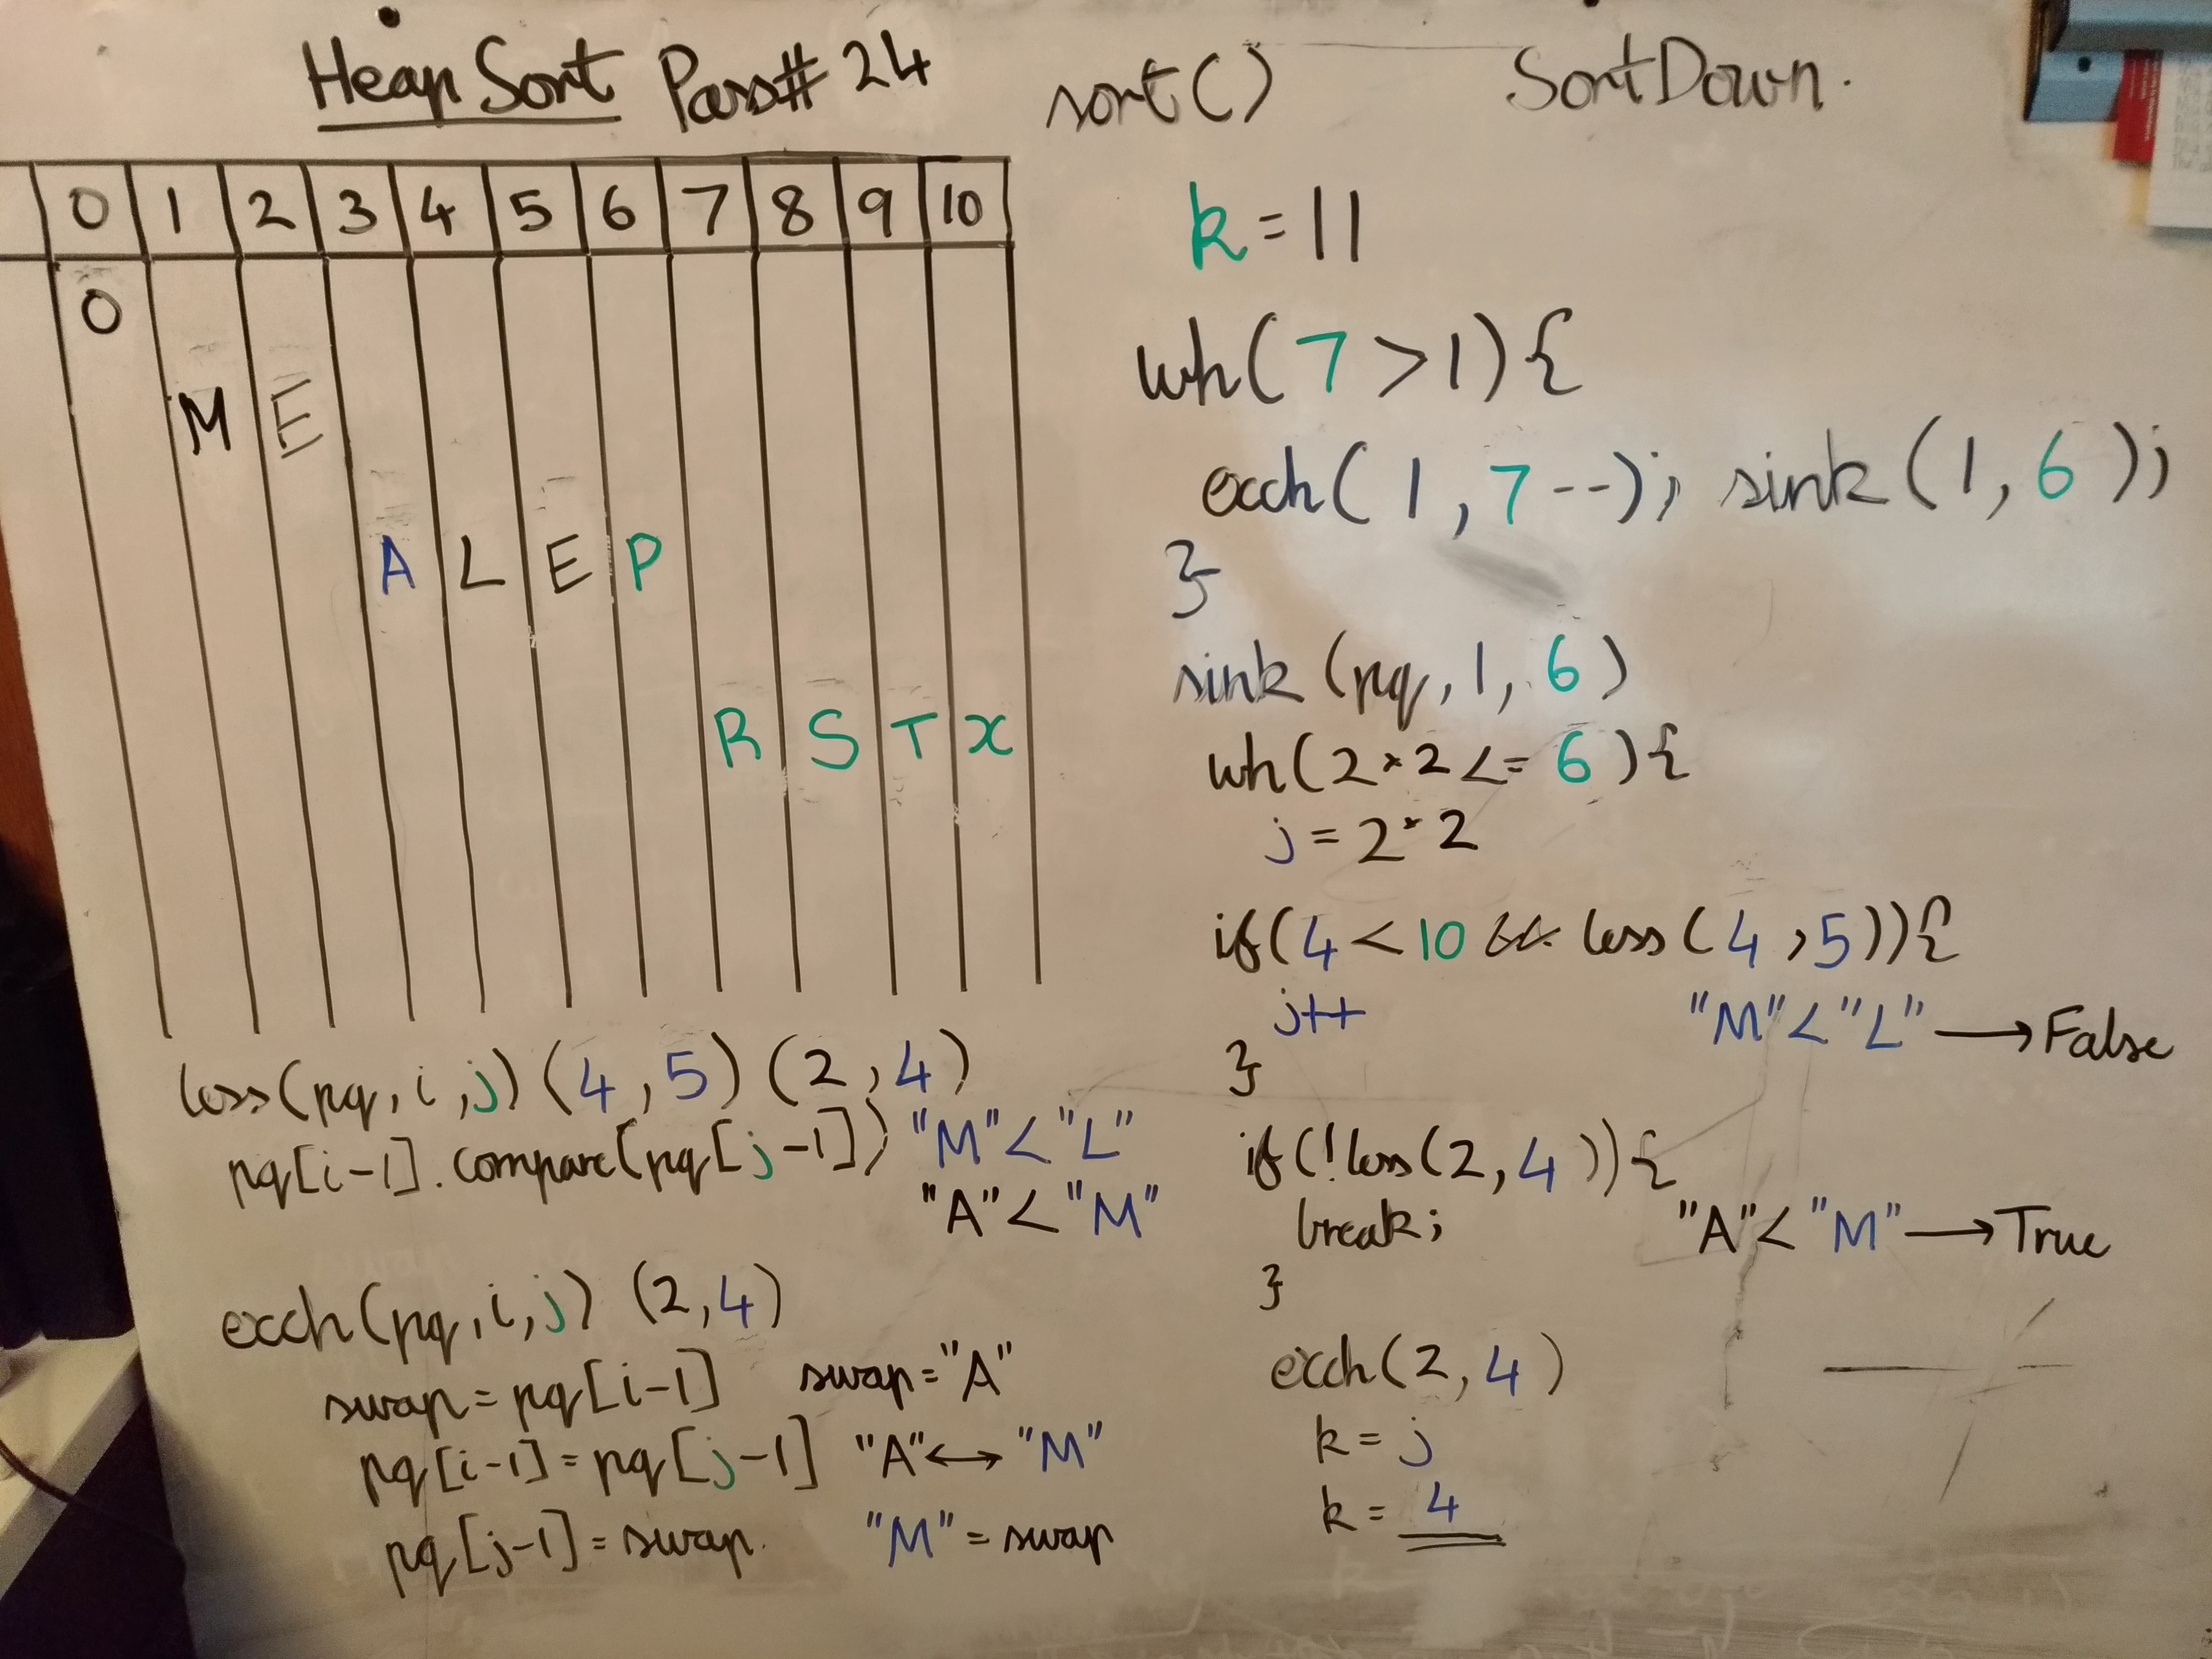 Heap Sort Pass# 24 sort() SortDown.
0 1 2 3 4 5 6 7 8 9 10
O
M E
A L E P
R S T X
k = 11
wh( 7 > 1 ) {
exch( 1 , 7 -- ) ; sink ( 1 , 6 ) ;
}
sink (pq, 1, 6 )
wh( 2 * 2 <= 6 ) {
j = 2 * 2
if( 4 < 10 && less ( 4 , 5 ) ) {
j++ "M" < "L" → False
}
if ( ! less ( 2, 4 ) ) {
break; "A" < "M" → True
}
exch( 2, 4 )
k = j
k = 4
less(pq, i, j) (4, 5) (2, 4)
pq[i-1].compare(pq[j-1]) "M" < "L"
"A" < "M"
exch(pq, i, j) (2, 4)
swap = pq[i-1] swap = "A"
pq[i-1] = pq[j-1] "A" ↔ "M"
pq[j-1] = swap. "M" = swap